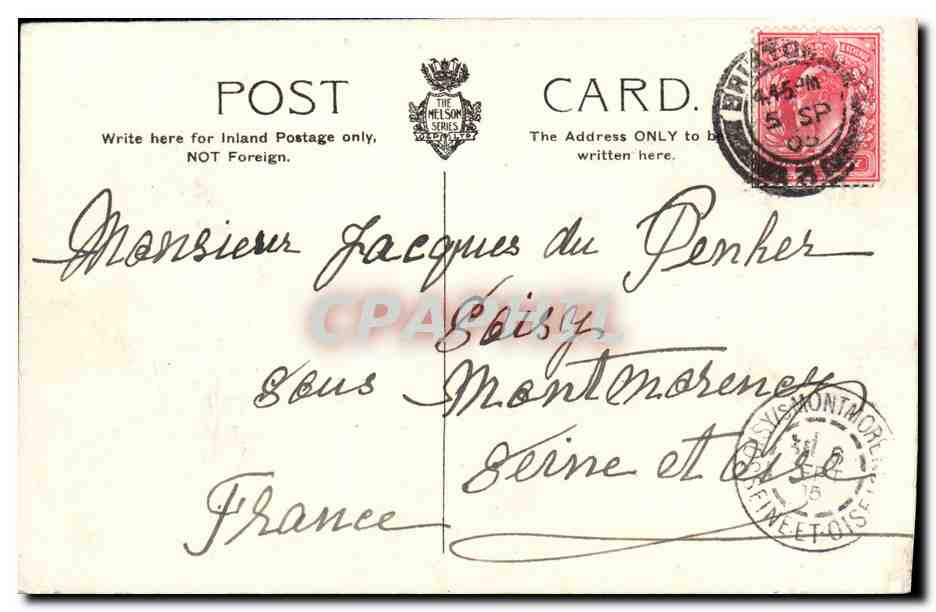 POST CARD.
THE
NELSON
SERIES
Write here for Inland Postage only,
NOT Foreign.
The Address ONLY to be
written here.
BRIXTON
4.45 PM
5 SP
05
Monsieur Jacques du Penher
Soisy
sous Montmorency
Seine et Oise
France
CPAPHIL
SOISY/S MONTMOREN
6
SEPT
05
SEINE-ET-OISE